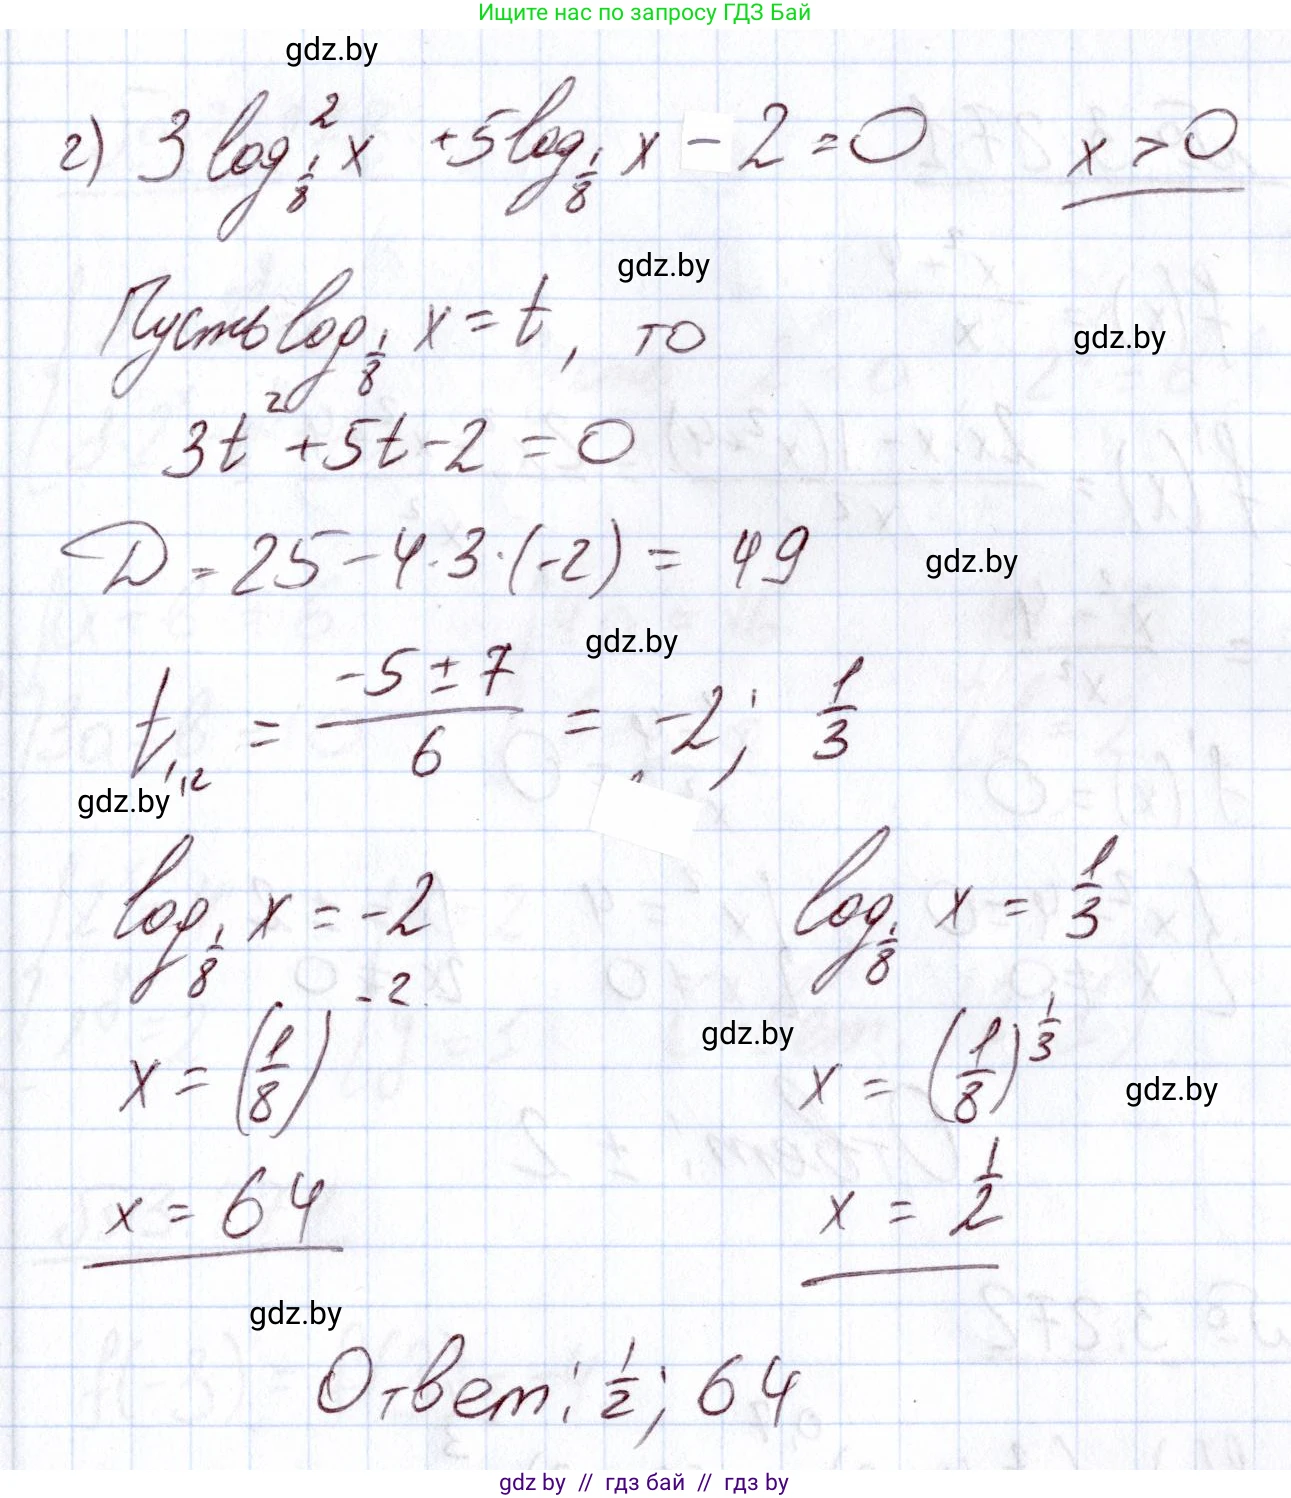 Ищите нас по запросу ГДЗ Бай
gdz.by
г) 3 log²_{1/8} x + 5 log_{1/8} x - 2 = 0    x > 0
gdz.by
Пусть log_{1/8} x = t, то
gdz.by
3t² + 5t - 2 = 0
D = 25 - 4·3·(-2) = 49
gdz.by
gdz.by
t_{1,2} = (-5 ± 7)/6 = -2; 1/3
gdz.by
log_{1/8} x = -2    log_{1/8} x = 1/3
gdz.by
x = (1/8)^{-2}    x = (1/8)^{1/3}
gdz.by
x = 64    x = 1/2
gdz.by
Ответ: 1/2; 64
gdz by // гдз бай // гдз by